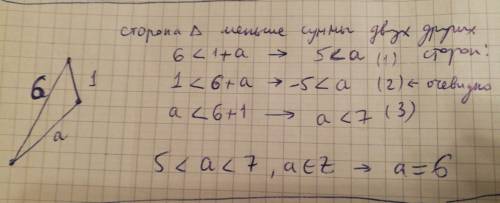 сторона Δ меньше суммы двух других сторон:
6 < 1 + a → 5 < a (1)
1 < 6 + a → -5 < a (2) ← очевидно
a < 6 + 1 → a < 7 (3)
6
1
a
5 < a < 7, a ∈ Z → a = 6